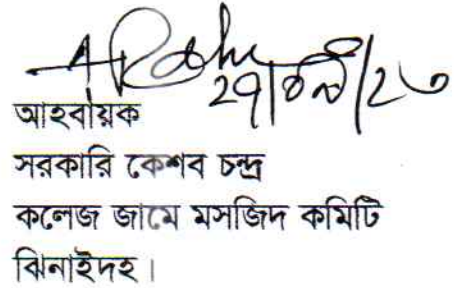 আহবায়ক
সরকারি কেশব চন্দ্র
কলেজ জামে মসজিদ কমিটি
ঝিনাইদহ।